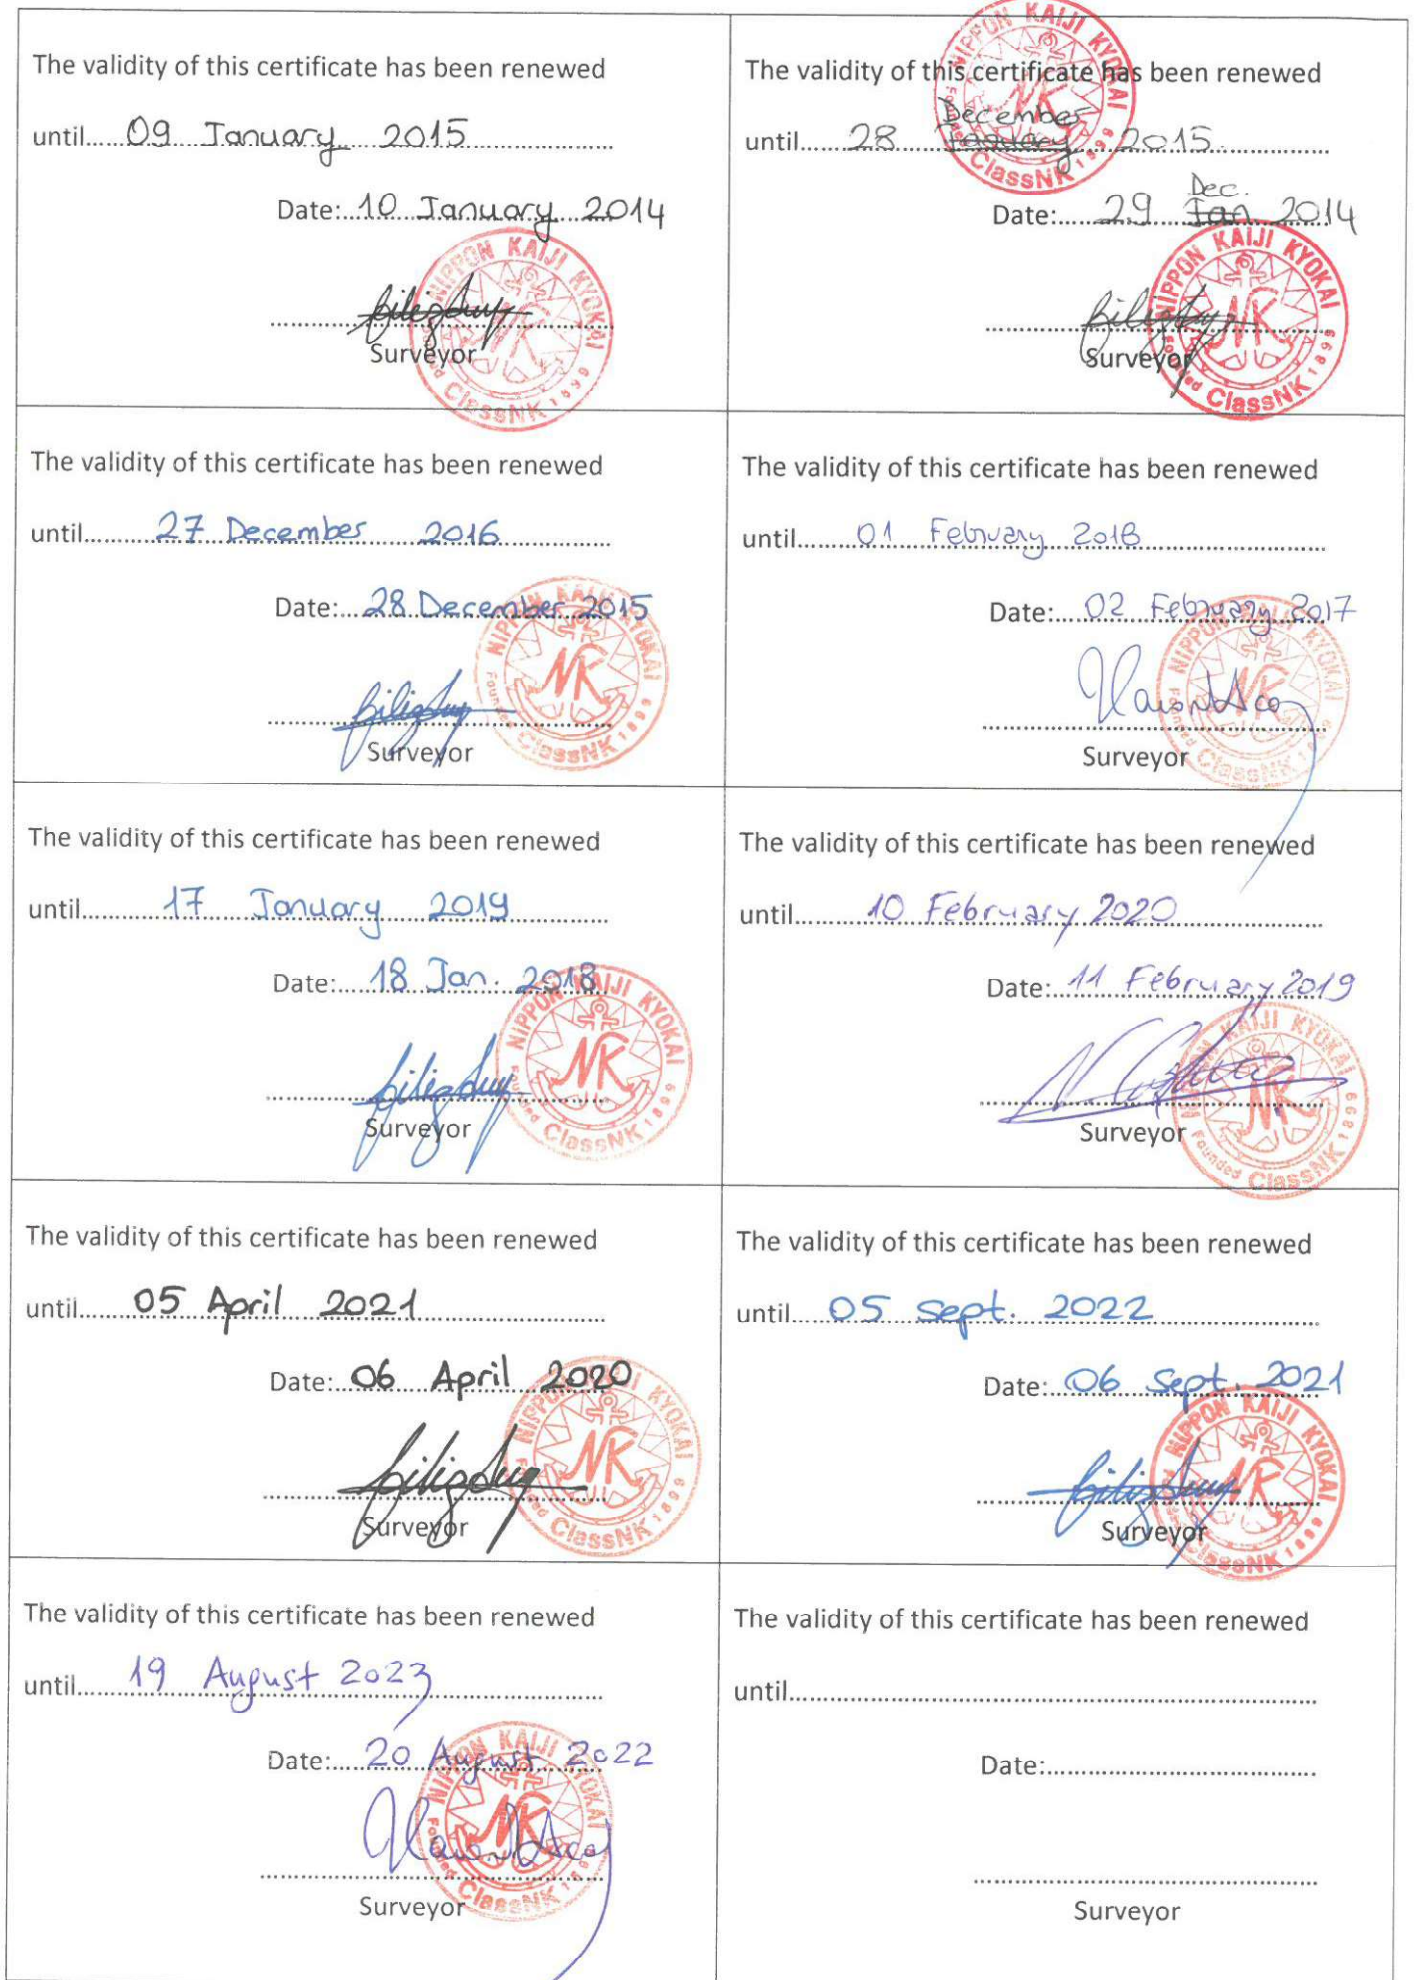 The validity of this certificate has been renewed
until......09 January 2015
Date:...10 January 2014
Surveyor
NIPPON KAIJI KYOKAI
Founded 1899
ClassNK
The validity of this certificate has been renewed
NIPPON KAIJI KYOKAI
Founded 1899
ClassNK
December
until......28 January 2015
Dec.
Date:......29 Jan 2014
Surveyor
NIPPON KAIJI KYOKAI
Founded 1899
ClassNK
The validity of this certificate has been renewed
until......27 December 2016
Date:...28 December 2015
Surveyor
NIPPON KAIJI KYOKAI
Founded 1899
ClassNK
The validity of this certificate has been renewed
until......01 February 2018
Date:...02 February 2017
Surveyor
NIPPON KAIJI KYOKAI
Founded 1899
ClassNK
The validity of this certificate has been renewed
until......17 January 2019
Date:...18 Jan. 2018
Surveyor
NIPPON KAIJI KYOKAI
Founded 1899
ClassNK
The validity of this certificate has been renewed
until......10 February 2020
Date:...11 February 2019
Surveyor
NIPPON KAIJI KYOKAI
Founded 1899
ClassNK
The validity of this certificate has been renewed
until......05 April 2021
Date:...06 April 2020
Surveyor
NIPPON KAIJI KYOKAI
Founded 1899
ClassNK
The validity of this certificate has been renewed
until......05 Sept. 2022
Date:...06 Sept. 2021
Surveyor
NIPPON KAIJI KYOKAI
Founded 1899
ClassNK
The validity of this certificate has been renewed
until......19 August 2023
Date:...20 August 2022
Surveyor
NIPPON KAIJI KYOKAI
Founded 1899
ClassNK
The validity of this certificate has been renewed
until......
Date:......
Surveyor